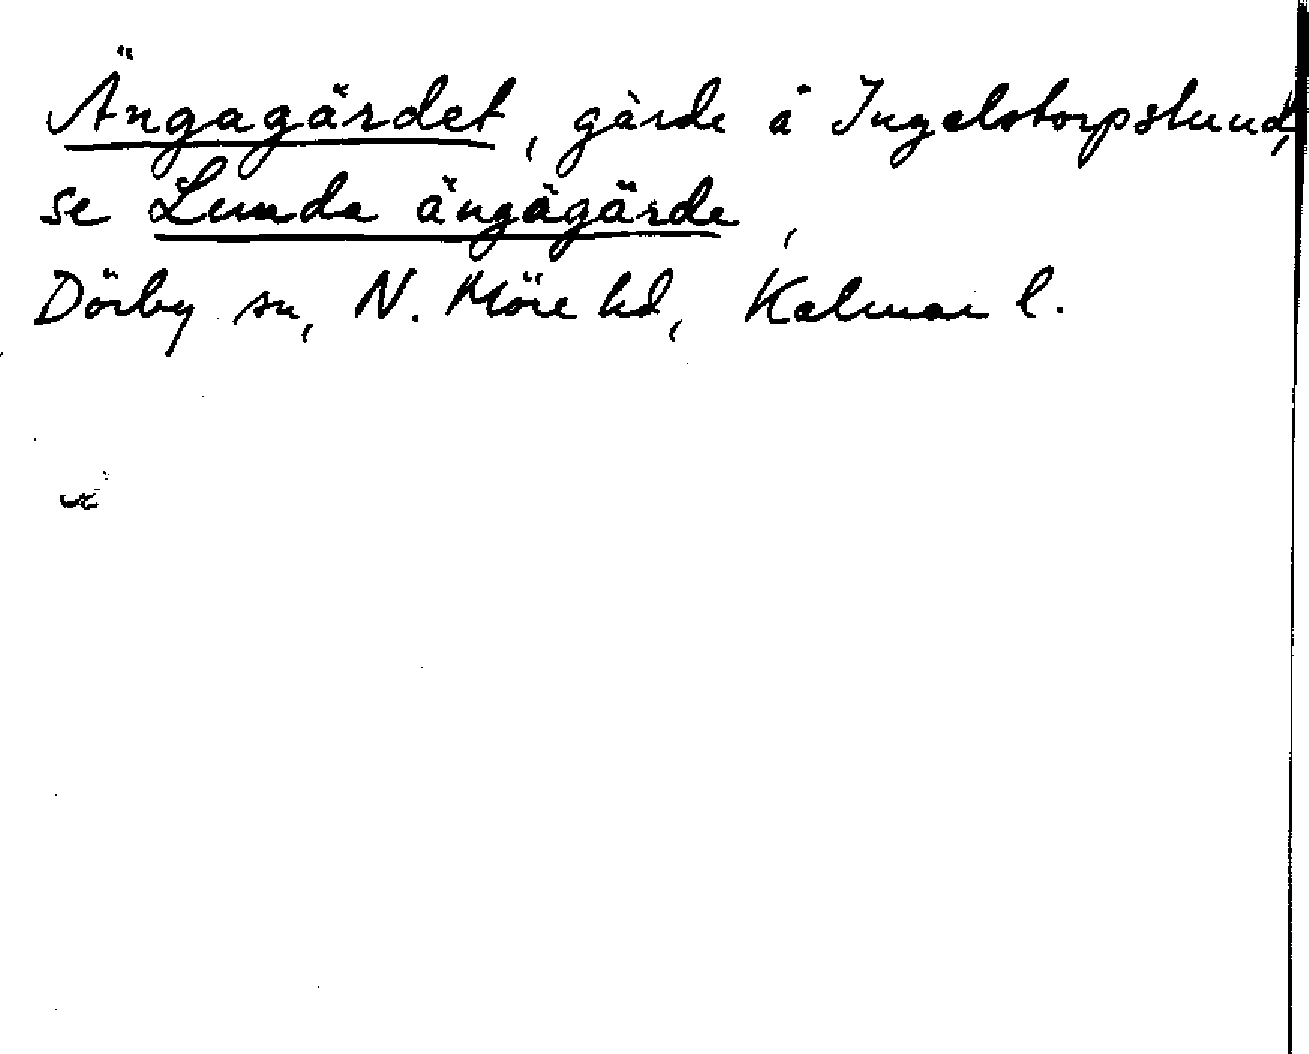 Ängagärdet, gärde å Ingelstorpslund,
se Lunda ängagärde,
Dörby sn, N. Möre hd, Kalmar l.